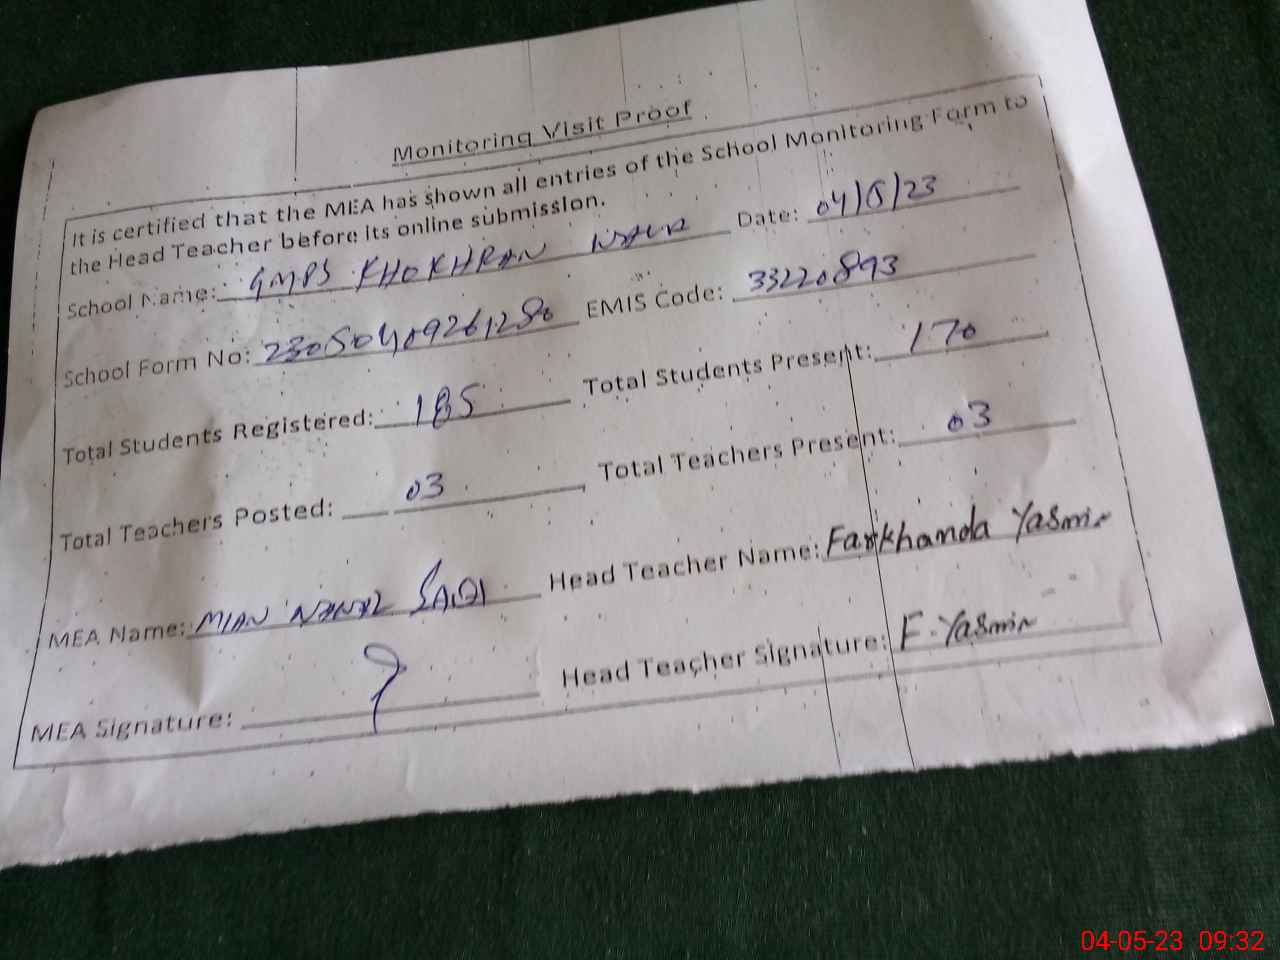 Monitoring Visit Proof
It is certified that the MEA has shown all entries of the School Monitoring Form to
the Head Teacher before its online submission.
School Name: GMPS KHOKHRAN Date: 04/5/23
School Form No: 23050409261280 EMIS Code: 33220893
Total Students Registered: 185 Total Students Present: 170
Total Teachers Posted: 03 Total Teachers Present: 03
MEA Name: MIAN SAQI Head Teacher Name: Farkhanda Yasmin
MEA Signature: Head Teacher Signature: F. Yasmin
04-05-23 09:32